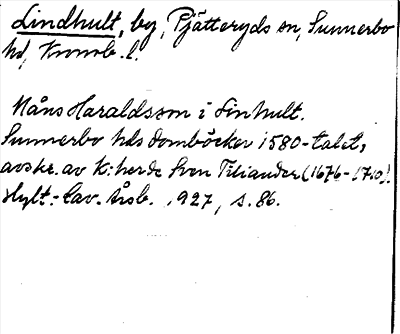 Lindhult, by, Pjätteryds sn, Sunnerbo
hd, Kronob. l.
Måns Haraldsson i Linhult.
Sunnerbo hds domböcker 1580-talet,
avskr. av K:herde Sven Tiliander (1676-1710).
Hylt.-Cav. Årsb. 1927, s. 86.